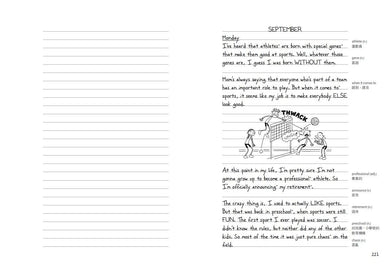 SEPTEMBER
Monday:
I've heard that athletes' are born with special genes'
that make them good at sports. Well, whatever those
genes are, I guess I was born WITHOUT them.
Mom's always saying that everyone who's part of a team
has an important role to play. But when it comes to'
sports, it seems like my job is to make everybody ELSE
look good.
THWACK
At this point in my life, I'm pretty sure I'm not
gonna grow up to become a professional' athlete. So
I'm officially announcing' my retirement'.
The crazy thing is, I used to actually LIKE sports.
But that was back in preschool', when sports were still
FUN. The first sport I ever played was soccer. I
didn't know the rules, but neither did any of the other
kids. So most of the time it was just pure chaos' on the
field.
athlete (n.)
運動員
gene (n.)
基因
when it comes to
professional (adj.)
announce (v.)
retirement (n.)
退休
preschool (n.)
chaos (n.)
混亂
221